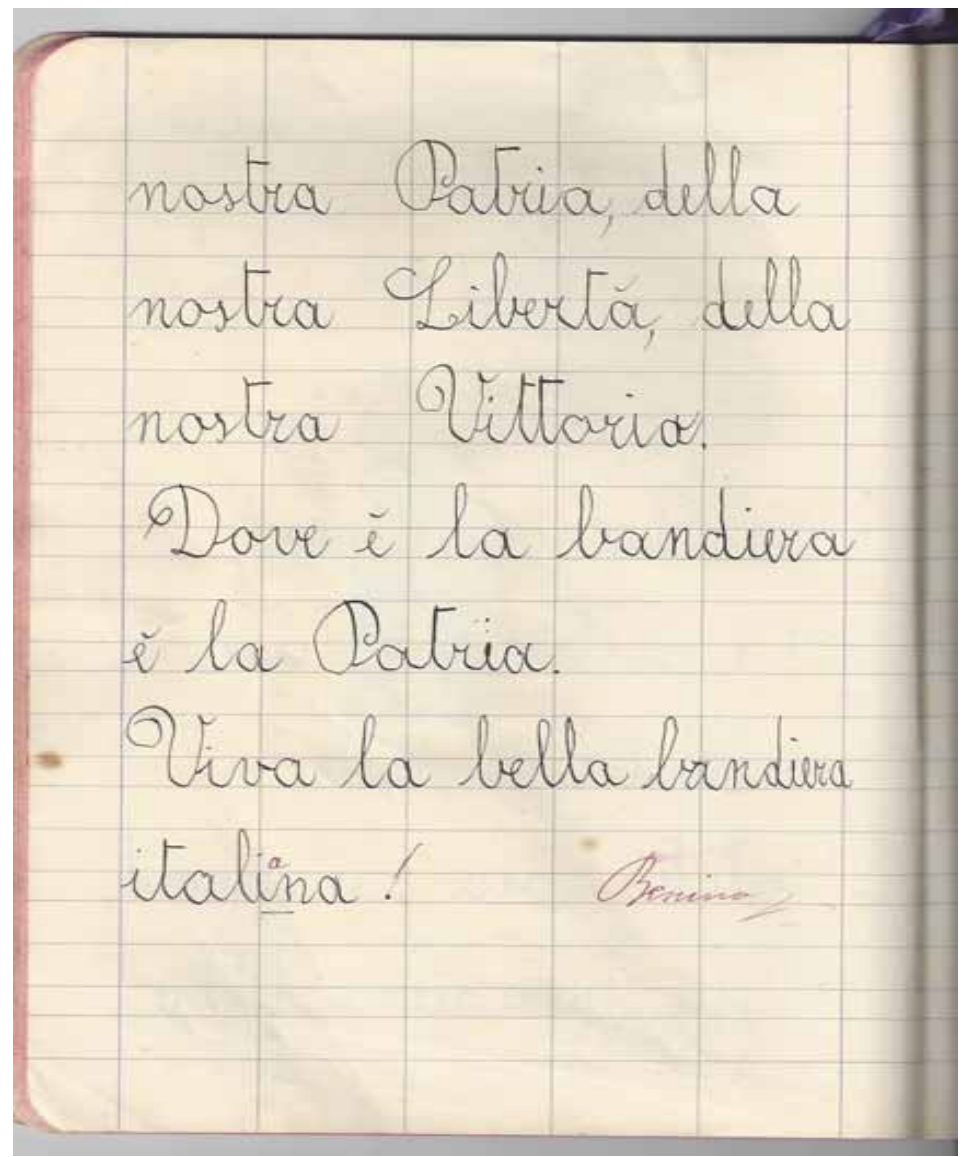 nostra Patria, della
nostra Libertà, della
nostra Vittoria.
Dove è la bandiera
è la Patria.
Viva la bella bandiera
italiana!
Benino